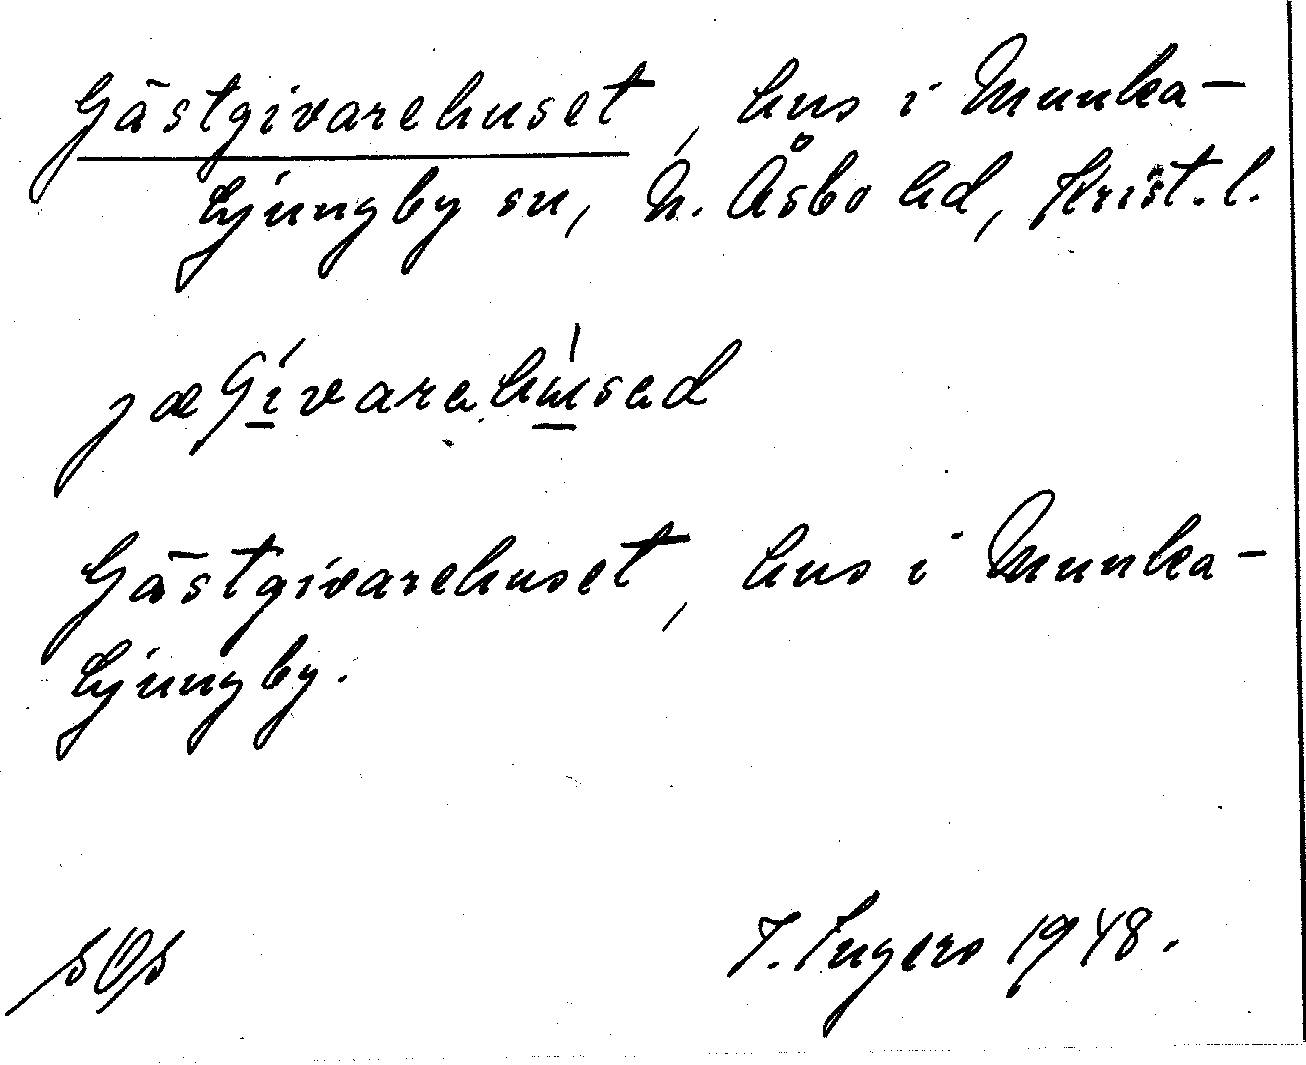 Gästgivarehuset, hus i Munka-
Ljungby sn, N. Åsbo hd, Krist. l.
Gästgivarehuset, hus i Munka-
Ljungby.
T. Ingers 1948.